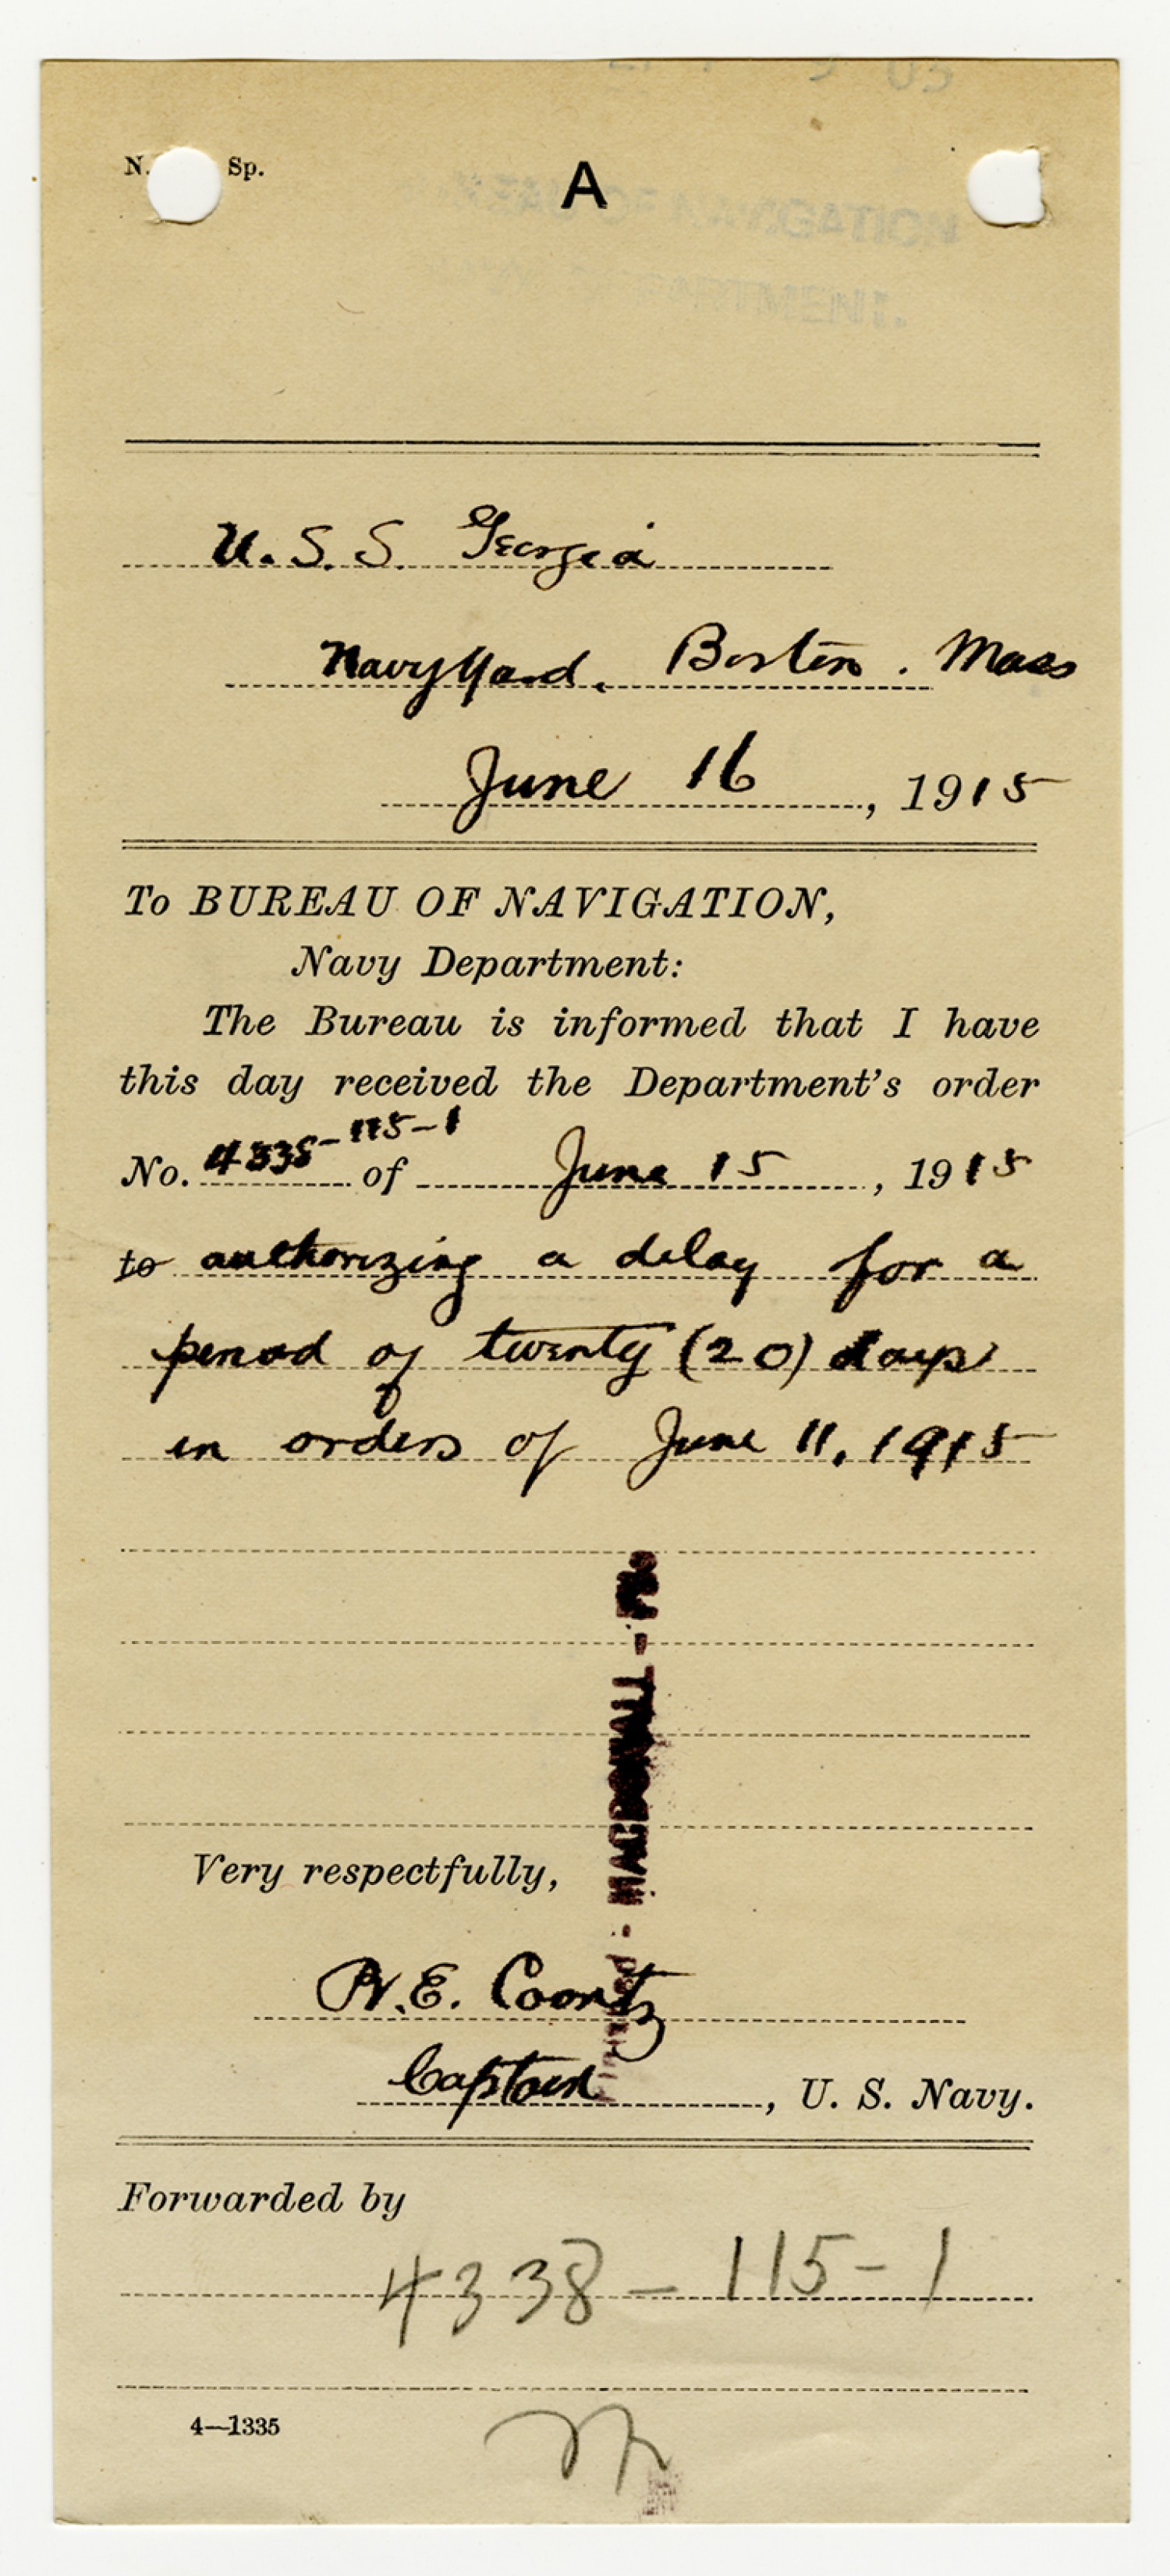 N. Sp.
A
BUREAU OF NAVIGATION
DEPARTMENT.
U.S.S. Georgia
Navy Yard, Boston. Mass
June 16, 1915
To BUREAU OF NAVIGATION,
Navy Department:
The Bureau is informed that I have
this day received the Department's order
No. 4338-115-1 of June 15, 1915
to authorizing a delay for a
period of twenty (20) days
in orders of June 11, 1915
Very respectfully,
R.E. Coontz
Captain, U. S. Navy.
Forwarded by
4338-115-1
4—1335